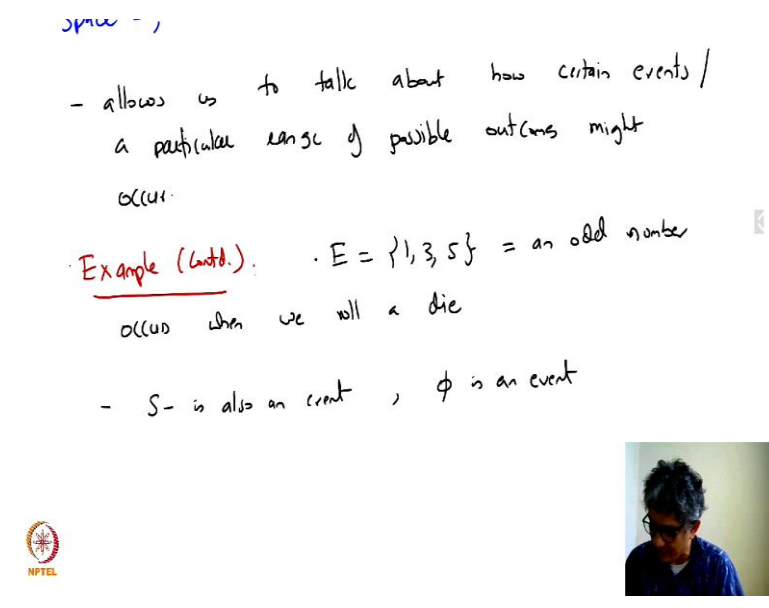 space - ,
- allows us to talk about how certain events /
a particular range of possible outcomes might
occur.
. Example (Contd.). . E = {1, 3, 5} = an odd number
occurs when we roll a die
- S - is also an event , φ is an event
NPTEL